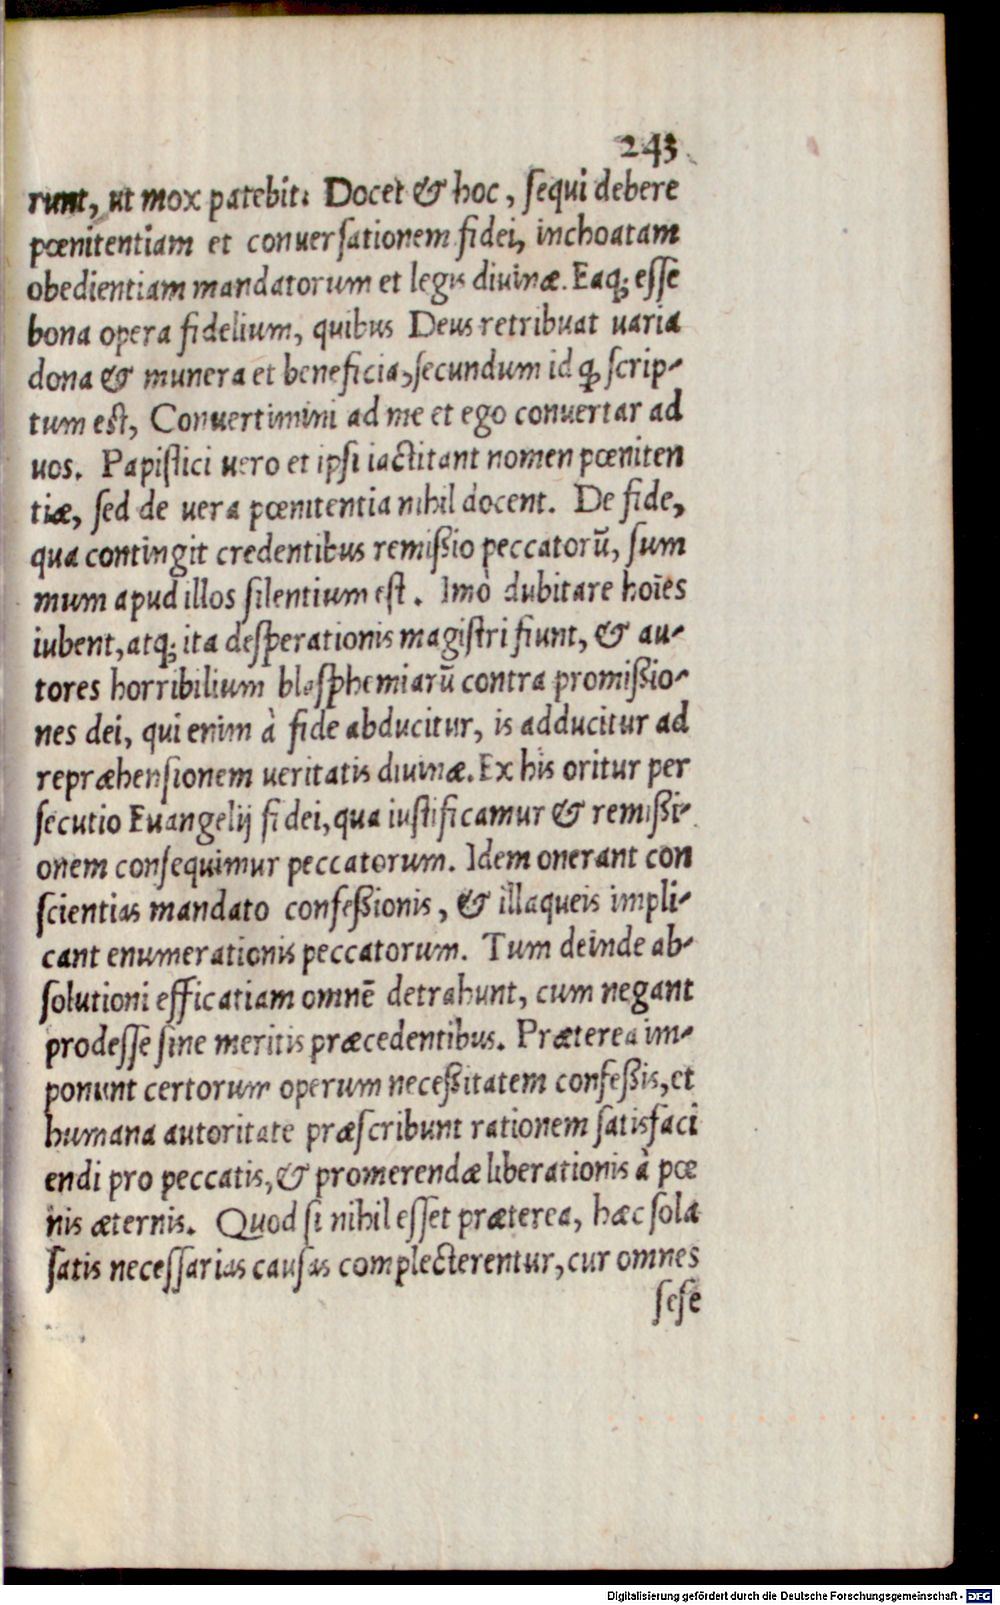 243
runt, ut mox patebit: Docet & hoc, ſequi debere
pœnitentiam et conuerſationem fidei, inchoatam
obedientiam mandatorum et legis diuinæ. Eaq; eſſe
bona opera fidelium, quibus Deus retribuat uaria
dona & munera et beneficia, ſecundum id ꝙ ſcrip-
tum eſt, Conuertimini ad me et ego conuertar ad
uos. Papiſtici uero et ipſi iactitant nomen pœniten
tiæ, ſed de uera pœnitentia nihil docent. De fide,
qua contingit credentibus remißio peccatorū, ſum
mum apud illos ſilentium eſt. Imò dubitare hoīes
iubent, atq; ita deſperationis magiſtri fiunt, & au-
tores horribilium blaſphemiarū contra promißio-
nes dei, qui enim à fide abducitur, is adducitur ad
repræhenſionem ueritatis diuinæ. Ex his oritur per
ſecutio Euangelij fidei, qua iuſtificamur & remißi-
onem conſequimur peccatorum. Idem onerant con
ſcientias mandato confeßionis, & illaqueis impli-
cant enumerationis peccatorum. Tum deinde ab-
ſolutioni efficatiam omnē detrahunt, cum negant
prodeſſe ſine meritis præcedentibus. Præterea im-
ponunt certorum operum neceßitatem confeßis, et
humana autoritate præſcribunt rationem ſatisfaci
endi pro peccatis, & promerendæ liberationis à pœ
nis æternis. Quod ſi nihil eſſet præterea, hæc ſola
ſatis neceſſarias cauſas complecterentur, cur omnes
ſeſe
Digitalisierung gefördert durch die Deutsche Forschungsgemeinschaft - DFG